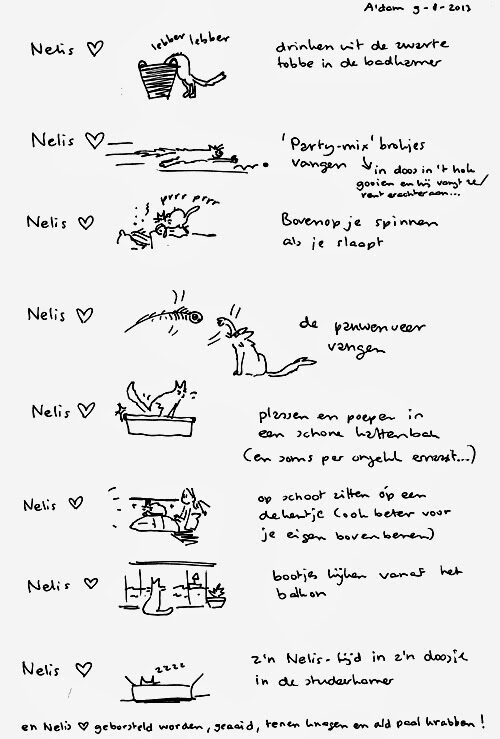 A'dam 9-8-2013
Nelis ♡
lebber lebber
drinken uit de zwarte
tobbe in de badkamer
Nelis ♡
'Party-mix' brokjes
vangen
↓ in doos in 't hok
gooien en hij vangt ze/
rent erachteraan...
Nelis ♡
prrr prrr
Bovenop je spinnen
als je slaapt
Nelis ♡
de pauwenveer
vangen
Nelis ♡
plassen en poepen in
een schone kattenbak
(en soms per ongeluk ernaast...)
Nelis ♡
op schoot zitten óp een
dekentje (ook beter voor
je eigen bovenbenen)
Nelis ♡
bootjes kijken vanaf het
balkon
Nelis ♡
zzzz
z'n Nelis-tijd in z'n doosje
in de studeerkamer
en Nelis ♡ geborsteld worden, geaaid, tenen knagen en
paal krabben!